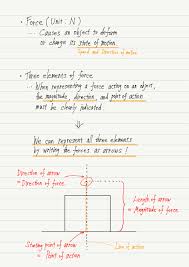 ・ Force ( Unit : N )
… Causes an object to deform
or change its state of motion.
Speed and Direction of motion
・ Three elements of force
… When representing a force acting on an object,
the magnitude, direction, and point of action
must be clearly indicated.
We can represent all three elements
by writing the forces as arrows !
Direction of arrow
= Direction of force
Length of arrow
= Magnitude of force
Starting point of arrow
= Point of action
Line of action